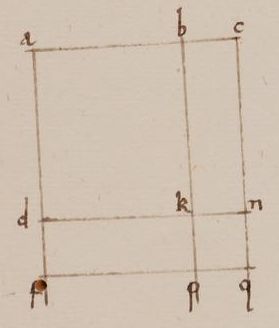 a b c
d k n
p q